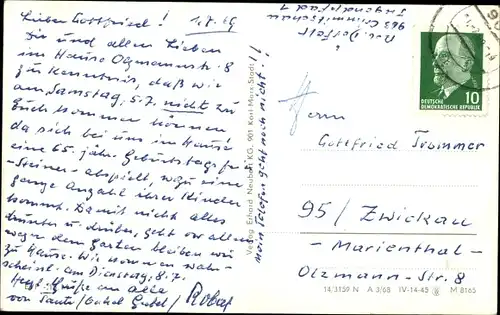 Lieber Gottfried! 1.7.69
Dir und allen Lieben
im Hause Olzmannstr. 8
zur Kenntnis, daß wir
am Samstag, 5.7. nicht zu
Euch kommen können
da sich bei uns im Hause
eine 65. jähr. Geburtstagsfe
-Steiner- abspielt, wozu eine
ganze Anzahl ihrer Kinder
kommt. Damit nicht alles
drunter u. drüber geht vor allem
wegen dem Garten bleiben wir
zu Hause. Wir kommen wahr-
scheinl. am Dienstag, 8.7.
Herzl. Grüße an alle
von Tante/Onkel Gretel/Robert
Mein Telefon geht noch nicht!!
Verlag Erhard Neubert KG, 901 Karl-Marx-Stadt
963 Crimmitschau
DEUTSCHE
DEMOKRATISCHE REPUBLIK
10
Herrn
Gottfried Trommer
95/ Zwickau
- Marienthal -
Olzmann-Str. 8
14/3159 N A 3/68 IV-14-45 M 8165